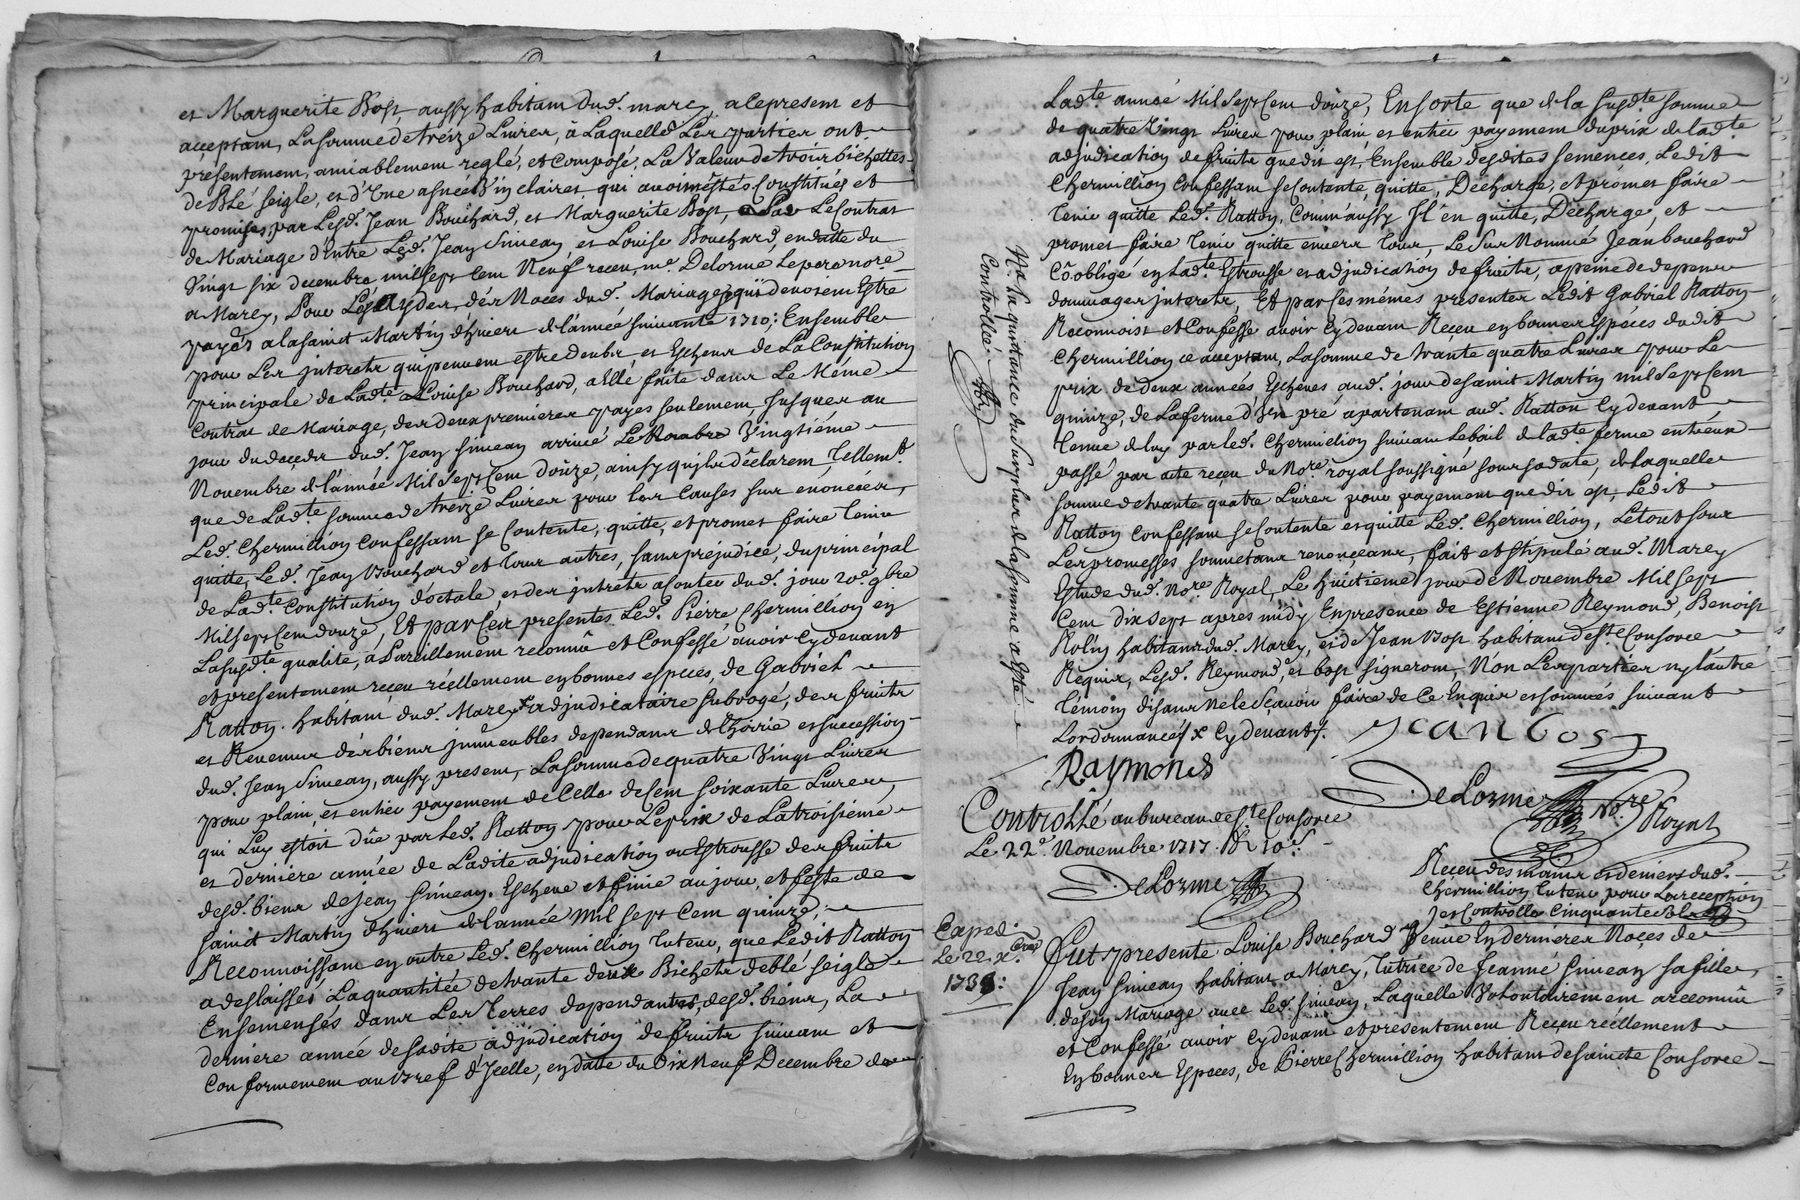 et Marguerite Bost, aussy habitam dud. marcy, a ce present et
acceptam, La somme de treize Livres, à Laquelle Les parties ont
presentemem, amiablement reglé, et Composé, La Valeur de trois bichettes
de Blé seigle, et d'une asnée vin clairet qui avoient estés Constitués et
promises, par Lesd. Jean Bouchard, et Marguerite Bost, Le Contrat
de Mariage d'Entre Led. Jean Simean et Louise Bouchard, en datte du
Vingt six decembre mil sept Cem Neuf receu, me. Delorme Le pere nore.
a Marcy, Pour Les Ayder des Noces dud. Mariage; qui devoient Estre
payés a la sainct Martin d'hivert de l'année suivante 1710; Ensemble
pour Les jnterets qui peuvent estre deubs et Escheus de La Constitution
principale de Ladte. Louise Bouchard, a Elle faite dans Le Méme
Contrat de Mariage, des deux premieres payes seulement, Jusques au
jour du deçedz dud. Jean simean arrivé Le Vingtiéme
Novembre de l'année Mil Sept Cem doûze, ainsy qu'ils declarem, Tellemt.
que de Ladte. somme de treize Livres pour les Causes sus enoncées,
Led. Chermillion Confessam se Contente, quitte, et promet faire tenir
quitte, Led. Jean Bouchard et tous autres, sans prejudice, du principal
de Ladte. Constitution doctale, et des jntrets a Conter dud. jour 20e. 9bre
Mil sept Cem douze, Et par Ces presentes Led. Pierre Chermillion en
La susdte. qualité, a Pareillemem reconnû et Confessé avoir Cy devant
et presentemem receu réellemem en bonnes especes, de Gabriel
Ratton habitam dud. Marcy x adjudicataire subrogé, des fruits
et Revenus des biens jmmeubles dependans de l'hoirie et succession
dud. Jean Simean, aussy presem, La somme de quatre Vingt Livres
pour plain, et entier payement de Celle de Cem soixante Livres,
qui Luy estoit dûe par Led. Ratton pour Le prix de La troisiéme
et derniere année de Ladite adjudication ou Estrousse des fruits
desd. biens de Jean Simean, Escheue et finie au jour, et feste de
sainct Martin d'hivert de l'année Mil sept Cem quinze;
Reconnoissam en outre Led. Chermillion tuteur, que Ledit Ratton
a deslaissés La quantitée de trante deux Bichets de blé seigle
Ensemensés dans Les Terres dependantes, desd. biens, La
derniere année de sadite adjudication de fruits suivam et
Conformemem au Bref d'Jcelle, en datte du Dix Neuf Decembre de
Ladte. année Mil Sept Cem doûze, En sorte que de la susdte. somme
de quatre Vingt Livres pour plain, et entier payement du prix de ladte.
adjudication de fruits que dit est, Ensemble desdites semences, Ledit
Chermillion Confessam se Contente, quitte, Décharge, et prómet faire
tenir quitte Led. Ratton, Comm'aussy Jl en quitte, Décharge, et
promet faire tenir quitte envers tous, Le sus Nommé Jean bouchard
Côobligé en Ladte. Estrousse et adjudication de fruits, a peine de depens
dommages jnterets, Et par Ses mémes presentes Ledit Gabriel Ratton
Reconnoist et Confesse avoir Cy devam Receu en bonnes Espéces dudit
Chermillion ce acceptam, La somme de trante quatre Livres pour Le
prix de deux années Escheues aud. jour de sainct Martin mil sept Cem
quinze, de La ferme d'Un pré apartenam aud. Ratton Cy devant
tenue de luy par led. Chermillion suivam Le bail de ladte. ferme entr'eux
passé par acte receu du Nore. royal soussigné sous sa date, de laquelle
somme de trante quatre Livres pour payement que dit est, Ledit
Ratton Confessam se Contente et quitte Led. Chermillion, Le tout sous
Les promesses soumettans renonçeans, fait et stipulé aud. Marcy
Estude dud. Nore. Royal, Le huictieme jour de Novembre Mil sept
Cem dix sept apres midy En presence de Estienne Reymond, Benoist
Rolin habitans dud. Marcy, et de Jean Bost habitam de Ste. Consorce
Requis, Lesd. Reymond, et bost signerom, Non Les parties ny l'autre
témoin disans ne le sçavoir faire de Ce Enquis et sommés suivant
Lordonnance / x Cy devant /.
Jean Bost
Raymond
DeLorme Nore. Royal
Na. la quittance du surplus de la somme a esté
Controllée.
Controllé au bureau de Ste. Consorce
Le 22e. Novembre 1717. R 10s.
DeLorme
Receu des mains et deniers dud.
Chermillion Tuteur pour La reception
et Controlle Cinquante sols
Exped.
Le 22 xbre
1738:
Fut presente Louise Bouchard Veuve En dernieres Noçes de
Jean Simean habitam a Marcy, Tutrice de Jeanne Simean sa fille,
de son Mariage avec Led. Simean, Laquelle Volontairement a reconnû
et Confessé avoir Cy devam et presentemem Receu réellement
En bonnes Especes, de Pierre Chermillion habitam de saincte Consorce